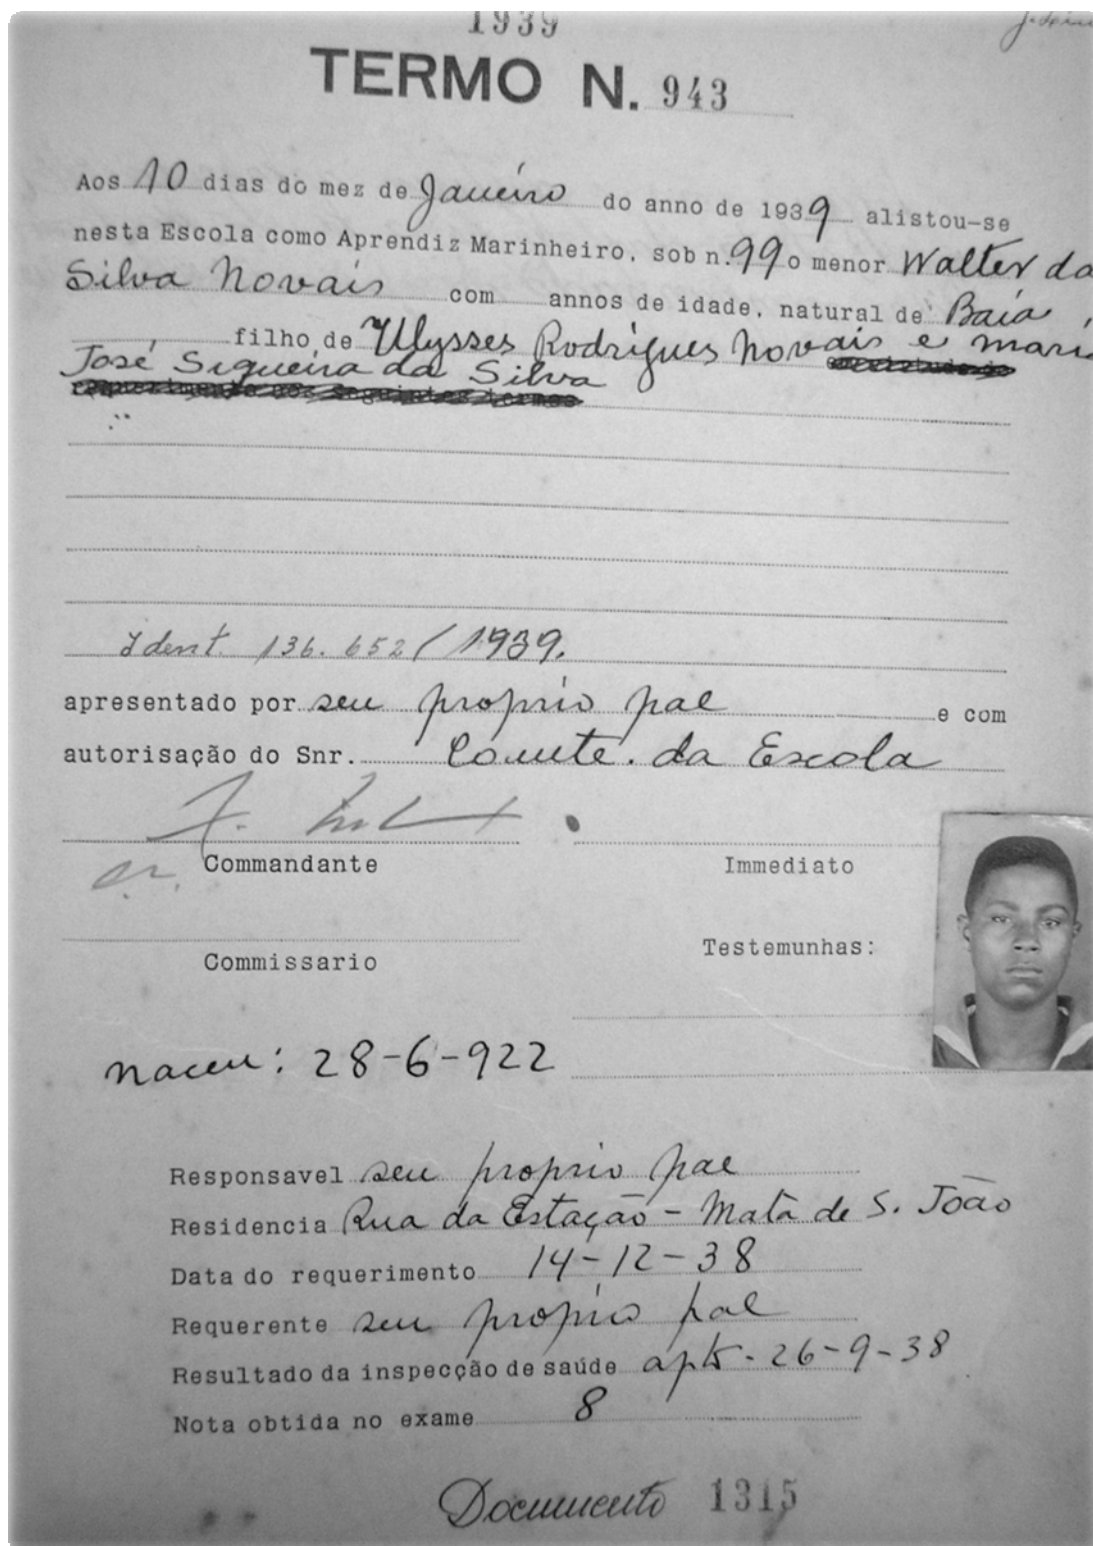 1939
TERMO N. 943
Aos 10 dias do mez de Janeiro do anno de 1939 alistou-se
nesta Escola como Aprendiz Marinheiro, sob n. 99 o menor Walter da
Silva Novais com annos de idade, natural de Baía,
filho de Ulysses Rodrigues Novais e Maria
José Siqueira da Silva
Ident. 136.652/1939.
apresentado por seu proprio pae e com
autorisação do Snr. Comte. da Escola
Commandante Immediato
Commissario Testemunhas:
naceu: 28-6-922
Responsavel seu proprio pae
Residencia Rua da Estação - Mata de S. João
Data do requerimento 14-12-38
Requerente seu proprio pae
Resultado da inspecção de saúde apto - 26-9-38
Nota obtida no exame 8
Documento 1315